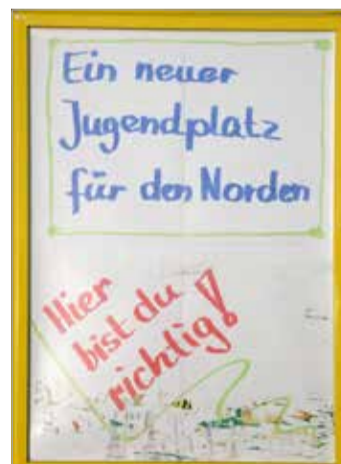 Ein neuer
Jugendplatz
für den Norden
Hier
bist du
richtig!